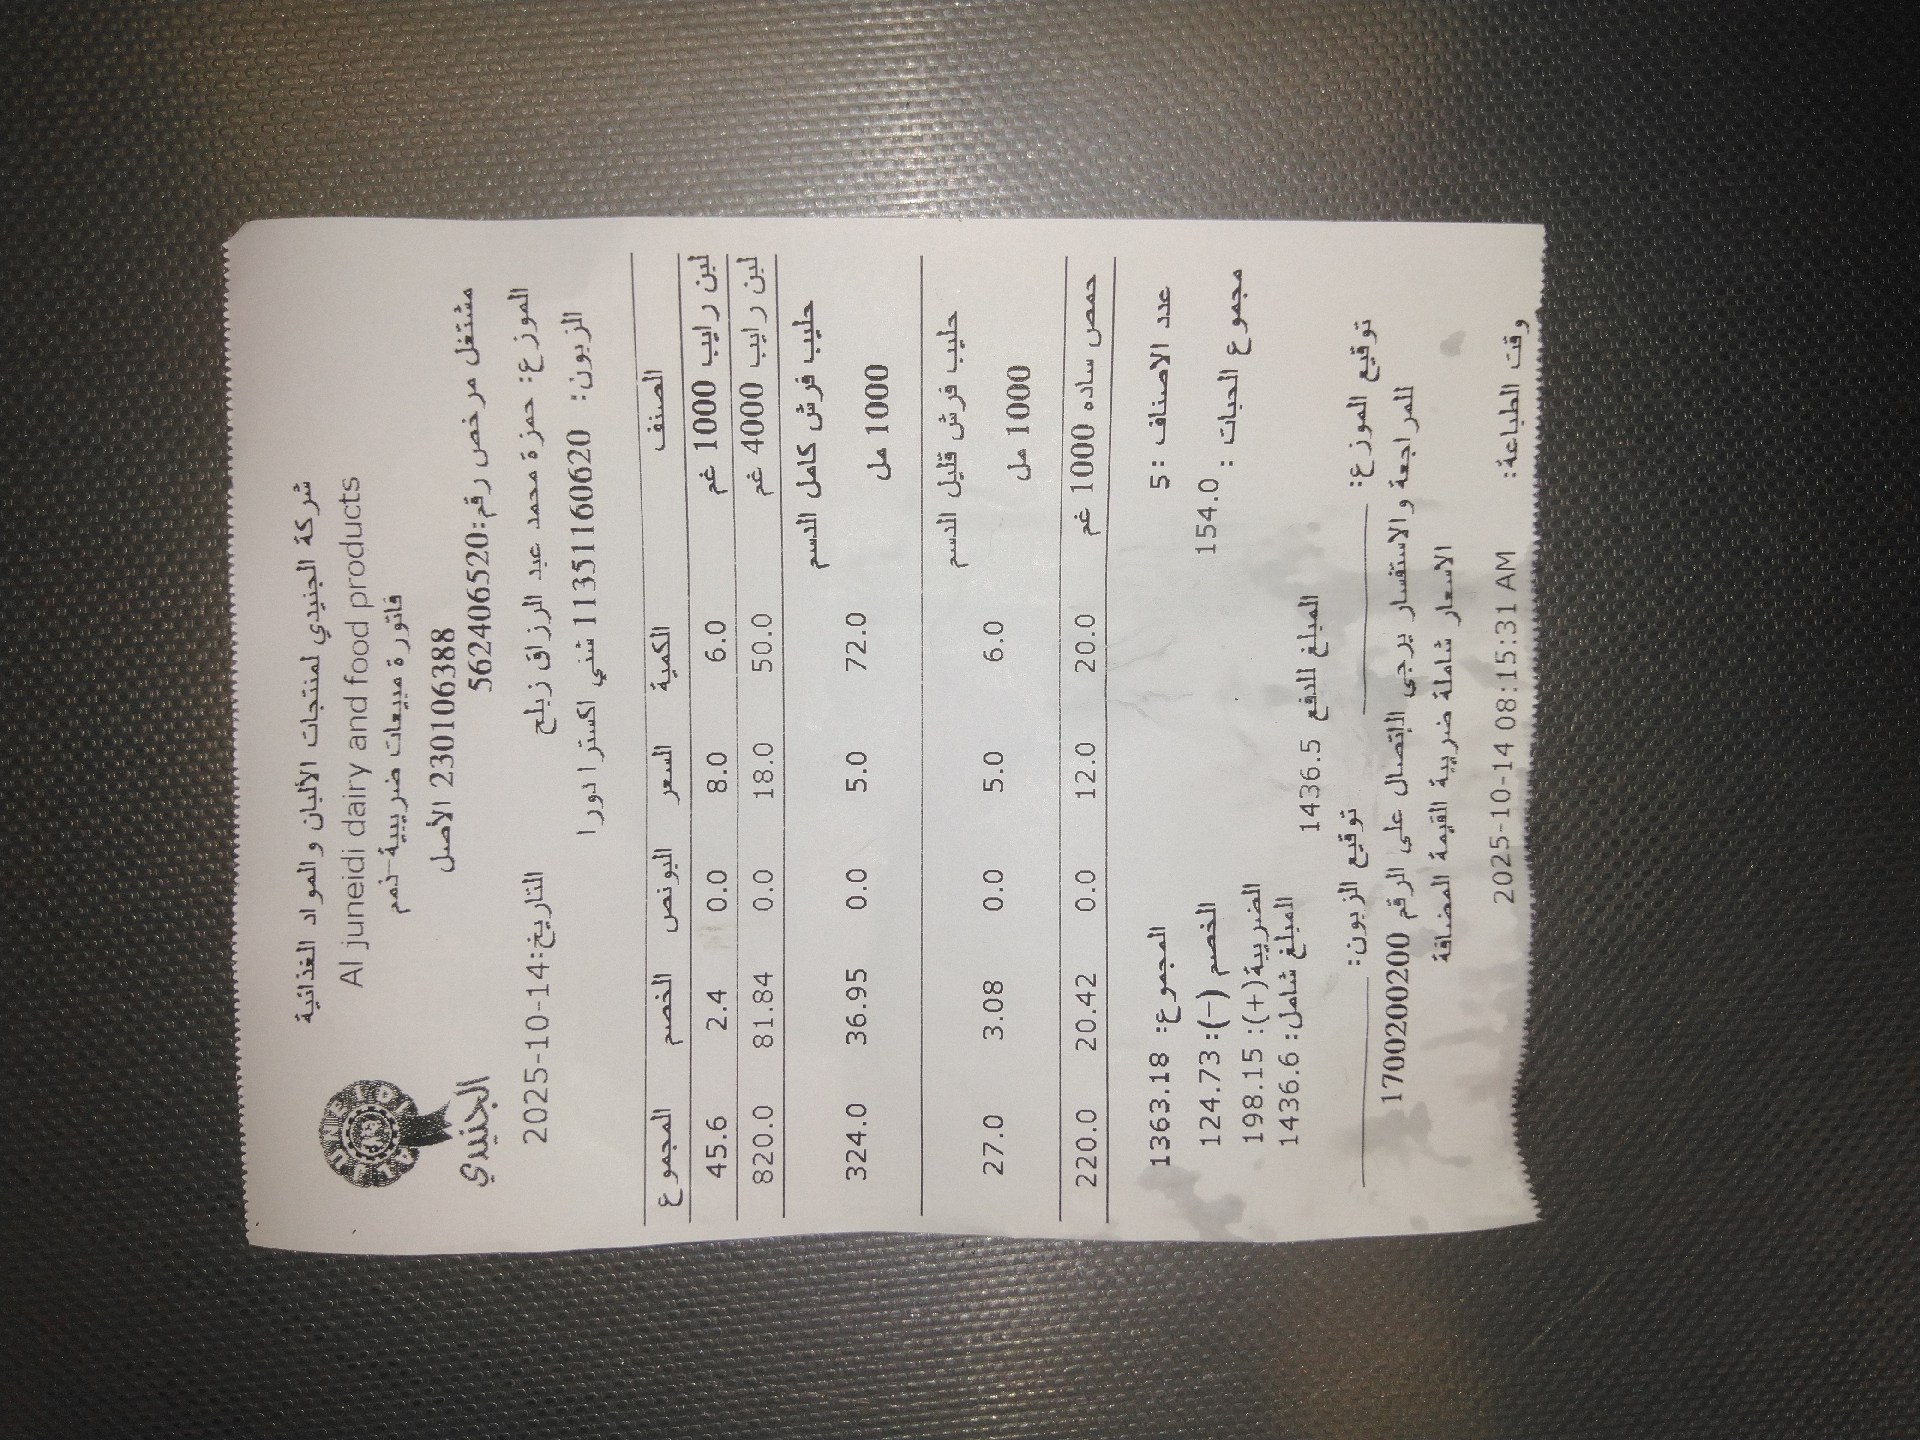 شركة الجنيدي لمنتجات الألبان والمواد الغذائية
Al juneidi dairy and food products
فاتورة مبيعات ضريبية-نمم
2301106388 الأصل
مشتغل مرخص رقم:562406520
الجنيدي
الموزع: حمزة محمد عبد الرزاق زبلح
التاريخ:2025-10-14
الزبون: 11351160620 شني اكسترا دورا
الصنف الكمية السعر البونص الخصم المجموع
لبن رايب 1000 غم 6.0 8.0 0.0 2.4 45.6
لبن رايب 4000 غم 50.0 18.0 0.0 81.84 820.0
حليب فرش كامل الدسم
1000 مل 72.0 5.0 0.0 36.95 324.0
حليب فرش قليل الدسم
1000 مل 6.0 5.0 0.0 3.08 27.0
حمص ساده 1000 غم 20.0 12.0 0.0 20.42 220.0
عدد الاصناف :5 المجموع: 1363.18
مجموع الحبات : 154.0 الخصم (-): 124.73
الضريبة(+): 198.15
المبلغ شامل: 1436.6
المبلغ للدفع 1436.5
توقيع الموزع: توقيع الزبون:
للمراجعة والاستفسار يرجى الاتصال على الرقم 1700200200
الاسعار شاملة ضريبة القيمة المضافة
وقت الطباعة: 2025-10-14 08:15:31 AM